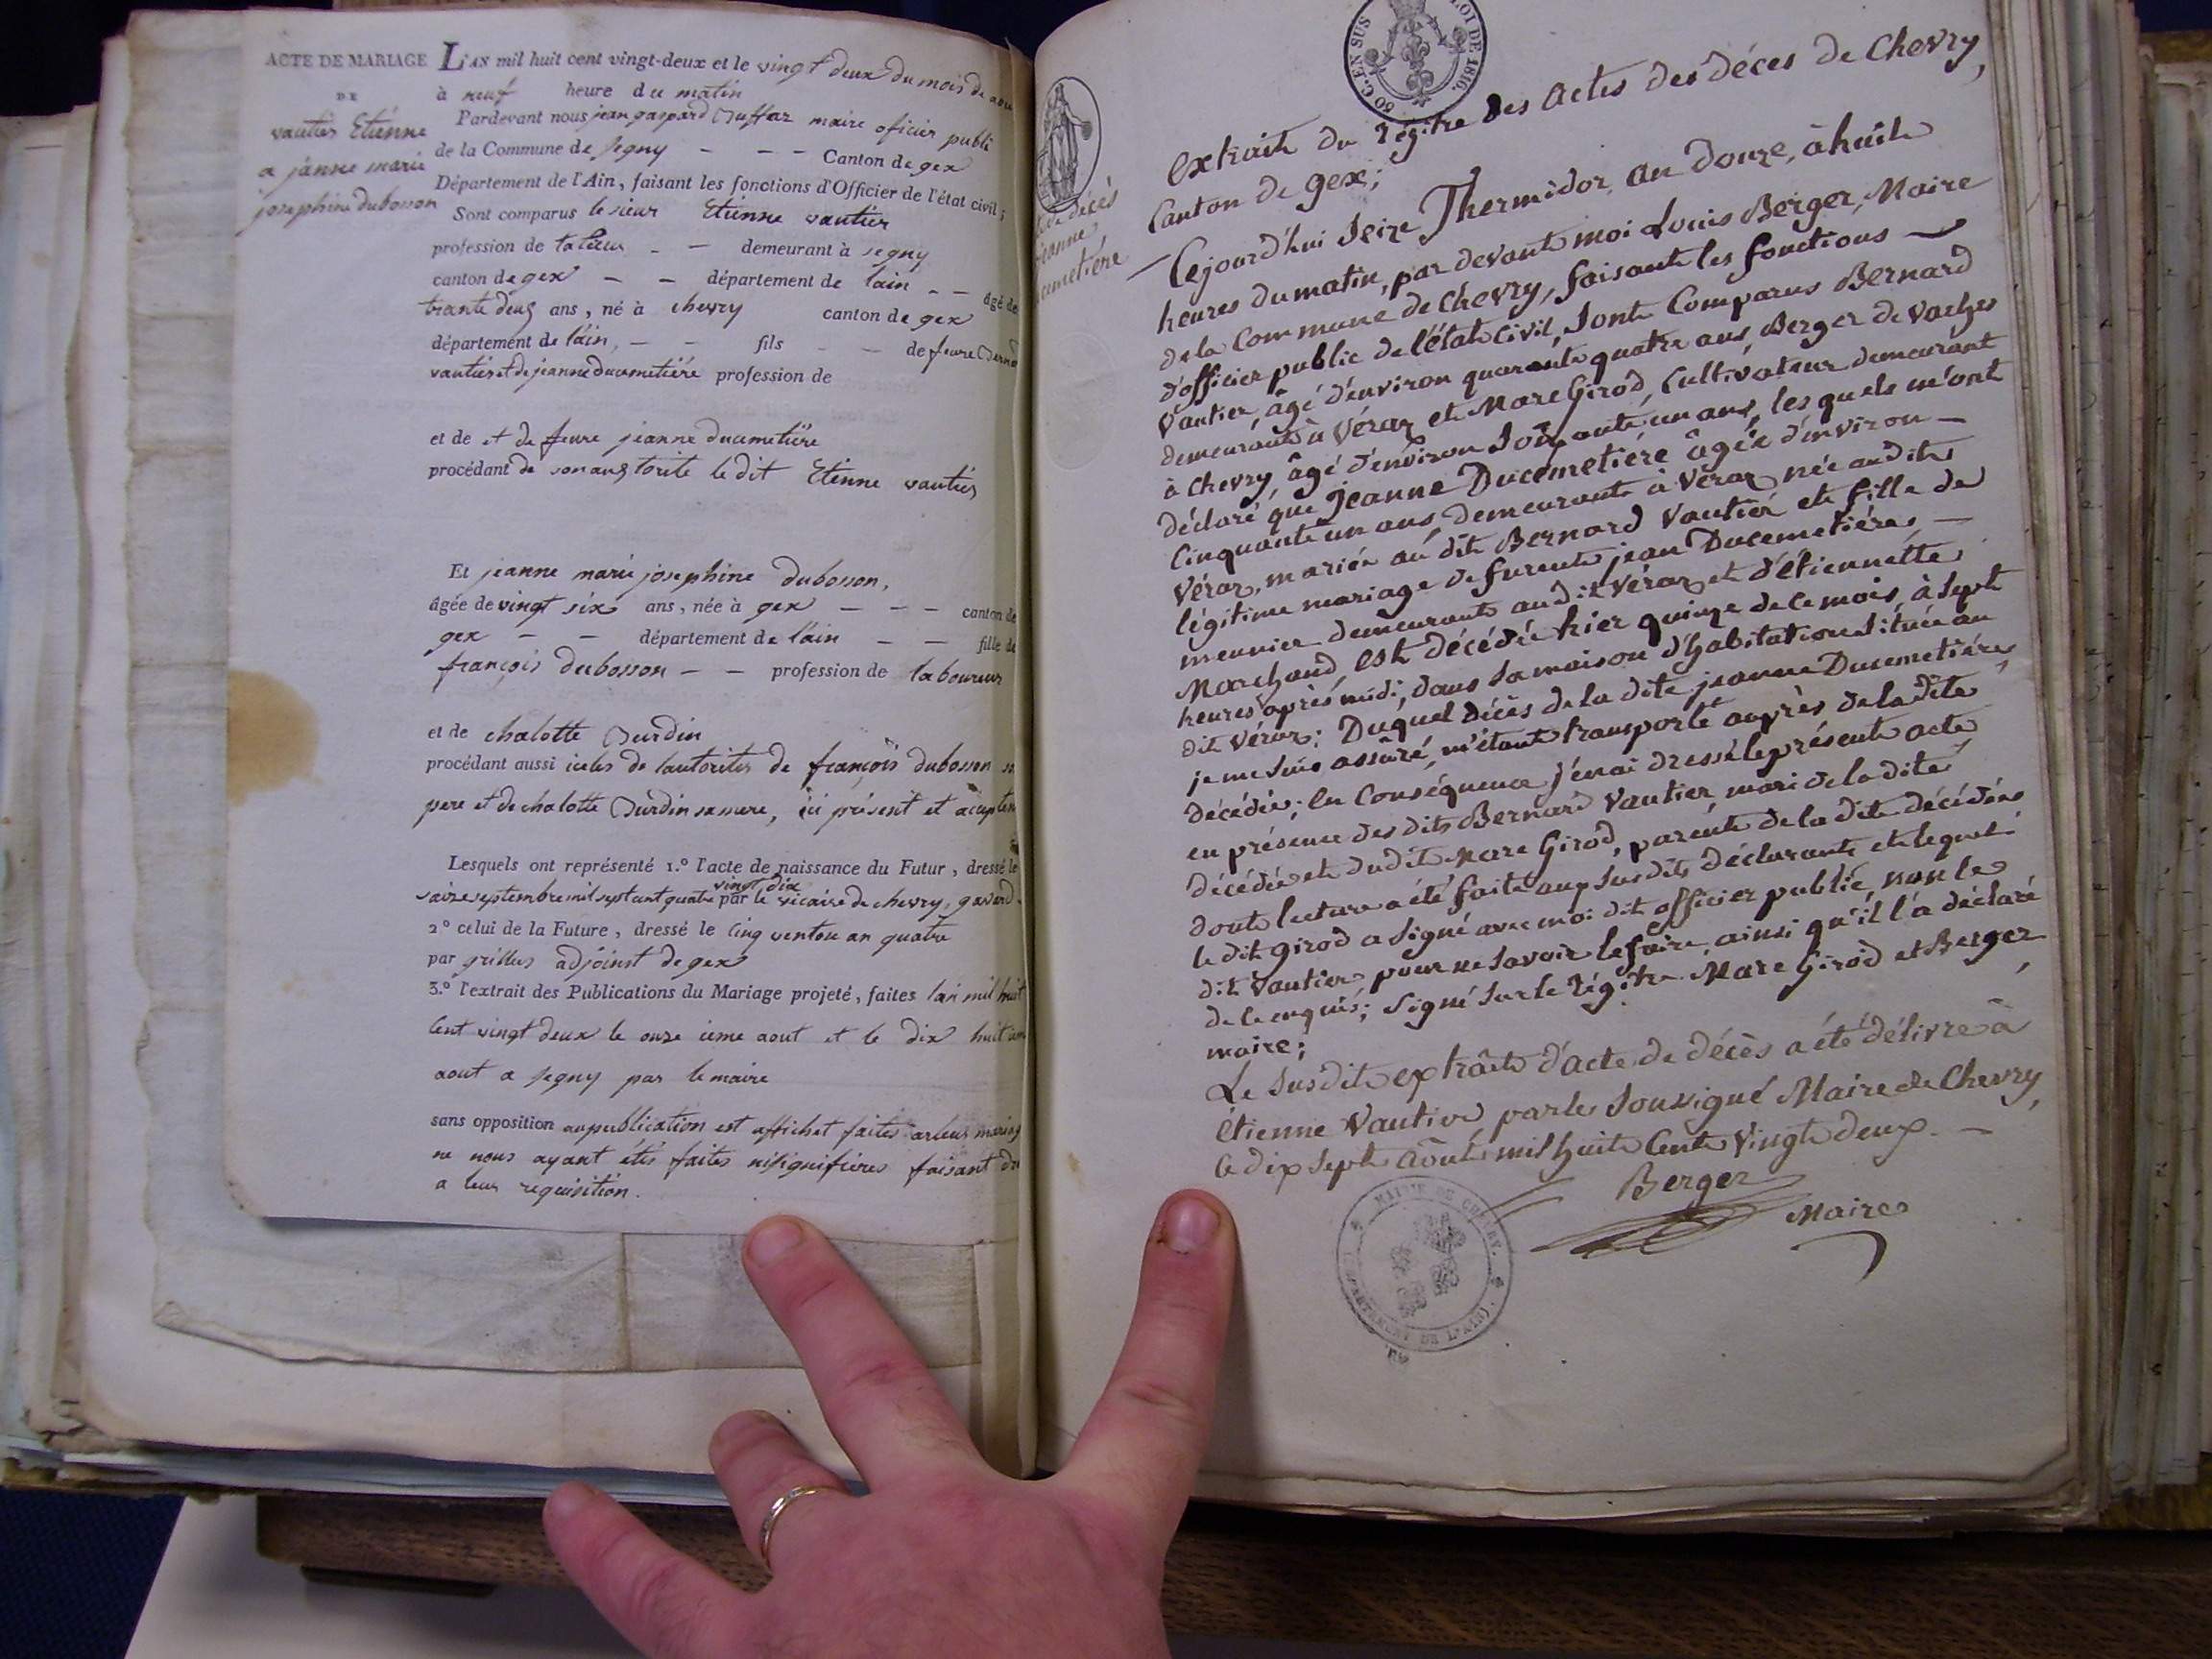 ACTE DE MARIAGE
DE
vautier Etienne
a janne marie
josephine dubosson
L'AN mil huit cent vingt-deux et le vingt deux du mois de aou
à neuf heure du matin
Pardevant nous jean gaspard maire oficier publi
de la Commune de segny - - - Canton de gex
Département de l'Ain, faisant les fonctions d'Officier de l'état civil;
Sont comparus le sieur Etienne vautier
profession de - - demeurant à segny
canton de gex - - département de lain - - âgé de
trante deux ans, né à chevry canton de gex
département de lain, - - fils - - de feu
vautier et de jeanne ducumetiére profession de
et de et de feue jeanne ducumetiére
procédant de son autorite le dit Etienne vautier
Et jeanne marie josephine dubosson,
âgée de vingt six ans, née à gex - - - canton de
gex - - département de lain - - fille de
françois dubosson - - profession de laboureur
et de chalotte Burdin
procédant aussi de lautorites de françois dubosson
pere et de chalotte Burdin sa mere, ici présent et
Lesquels ont représenté 1.º l'acte de naissance du Futur, dressé le
vingt dix
saize septembre mil sept cent quatre par le vicaire de chevry,
2º celui de la Future, dressé le cinq ventose an quatre
par adjoinst de gex
3.º l'extrait des Publications du Mariage projeté, faites lan mil huit
Cent vingt deux le onze ieme aout et le dix huit
aout a segny par le maire
sans opposition au publication est affichet faites
ne nous ayant étés faites faisant
a leur requisition.
50 C. EN SUS
LOI DE 1816.
de décès
jeanne
cumetiére
extrait du régitre des actes des décès de Chevry,
Canton de gex;
Cejourd'hui seize Thermidor, an Douze, à huit
heures du matin, par devant moi Louis Berger, Maire
de la Commune de Chevry, faisant les fonctions -
d'officier public de l'état civil, sont Comparus Bernard
Vautier, âgé d'environ quarante quatre ans, Berger de vaches
demeurant à Véraz et Marc Girod, Cultivateur demeurant
à Chevry, âgé d'environ soixante un ans, les quels m'ont
déclaré que jeanne Ducemetiére âgée d'environ -
Cinquante un ans, demeurant à Véraz, née au dit
Véraz, mariée au dit Bernard Vautier et fille de
légitime mariage de furent jean Ducemetiére, -
meunier demeurant au dit Véraz et d'étiennette
Marchand, est décédée hier quinze de ce mois, à sept
heures après midi, dans sa maison d'habitation située au
dit Veraz; Duquel décès de la dite jeanne Ducemetiére,
je me suis assuré, m'étant transporté auprès de la dite
décédée; en Conséquence j'en ai dressé le présent acte
en présence des dits Bernard Vautier, mari de la dite
décédée et du dit Marc Girod, parent de la dite décédée
dont lecture a été faite aux susdits déclarants et lequel
le dit Girod a signé avec moi dit officier public, non le
dit Vautier, pour ne savoir le faire, ainsi qu'il l'a déclaré
de ce enquis; signé sur le régitre Marc Girod et Berger,
maire;
Le susdit extrait d'acte de décès a été délivré à
étienne Vautier par le soussigné Maire de Chevry,
le dix sept août mil huit Cent Vingt deux. -
Berger
Maire
MAIRIE DE CHEVRY.
(DEPARTEMENT DE L'AIN)